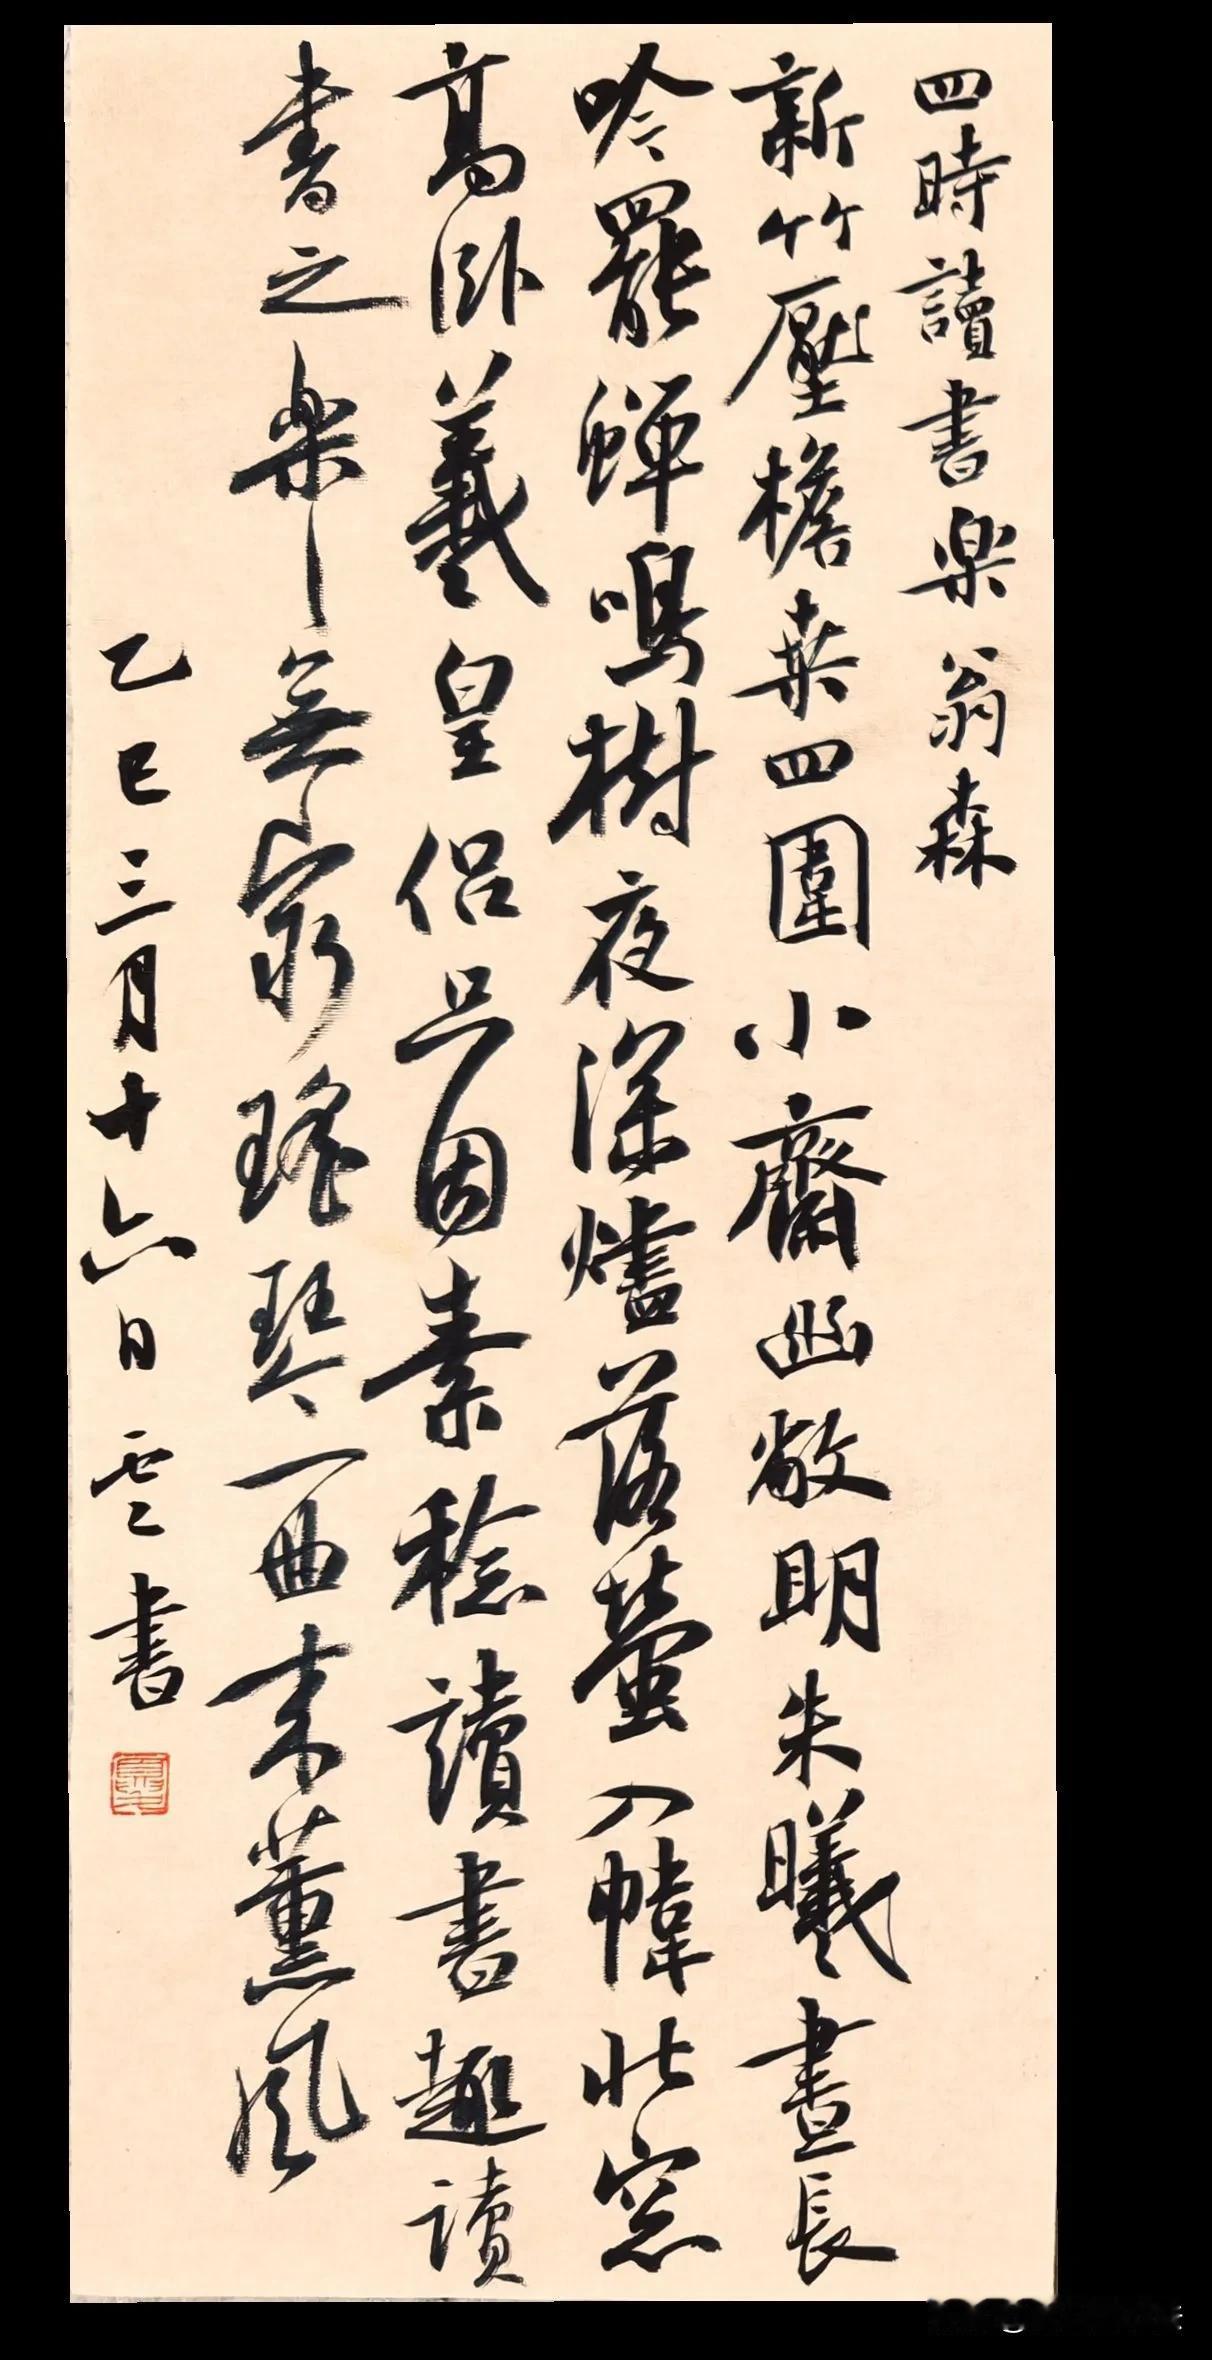 四時讀書楽 翁森
新竹壓檐桒四圍小齋幽敞明朱曦晝長
吟罷蟬鳴樹夜深燼落螢入幃北窓
高卧羲皇侶只因素稔讀書趣讀
書之楽楽無窮瑤琴一曲来薰風
乙巳三月十六日雲書